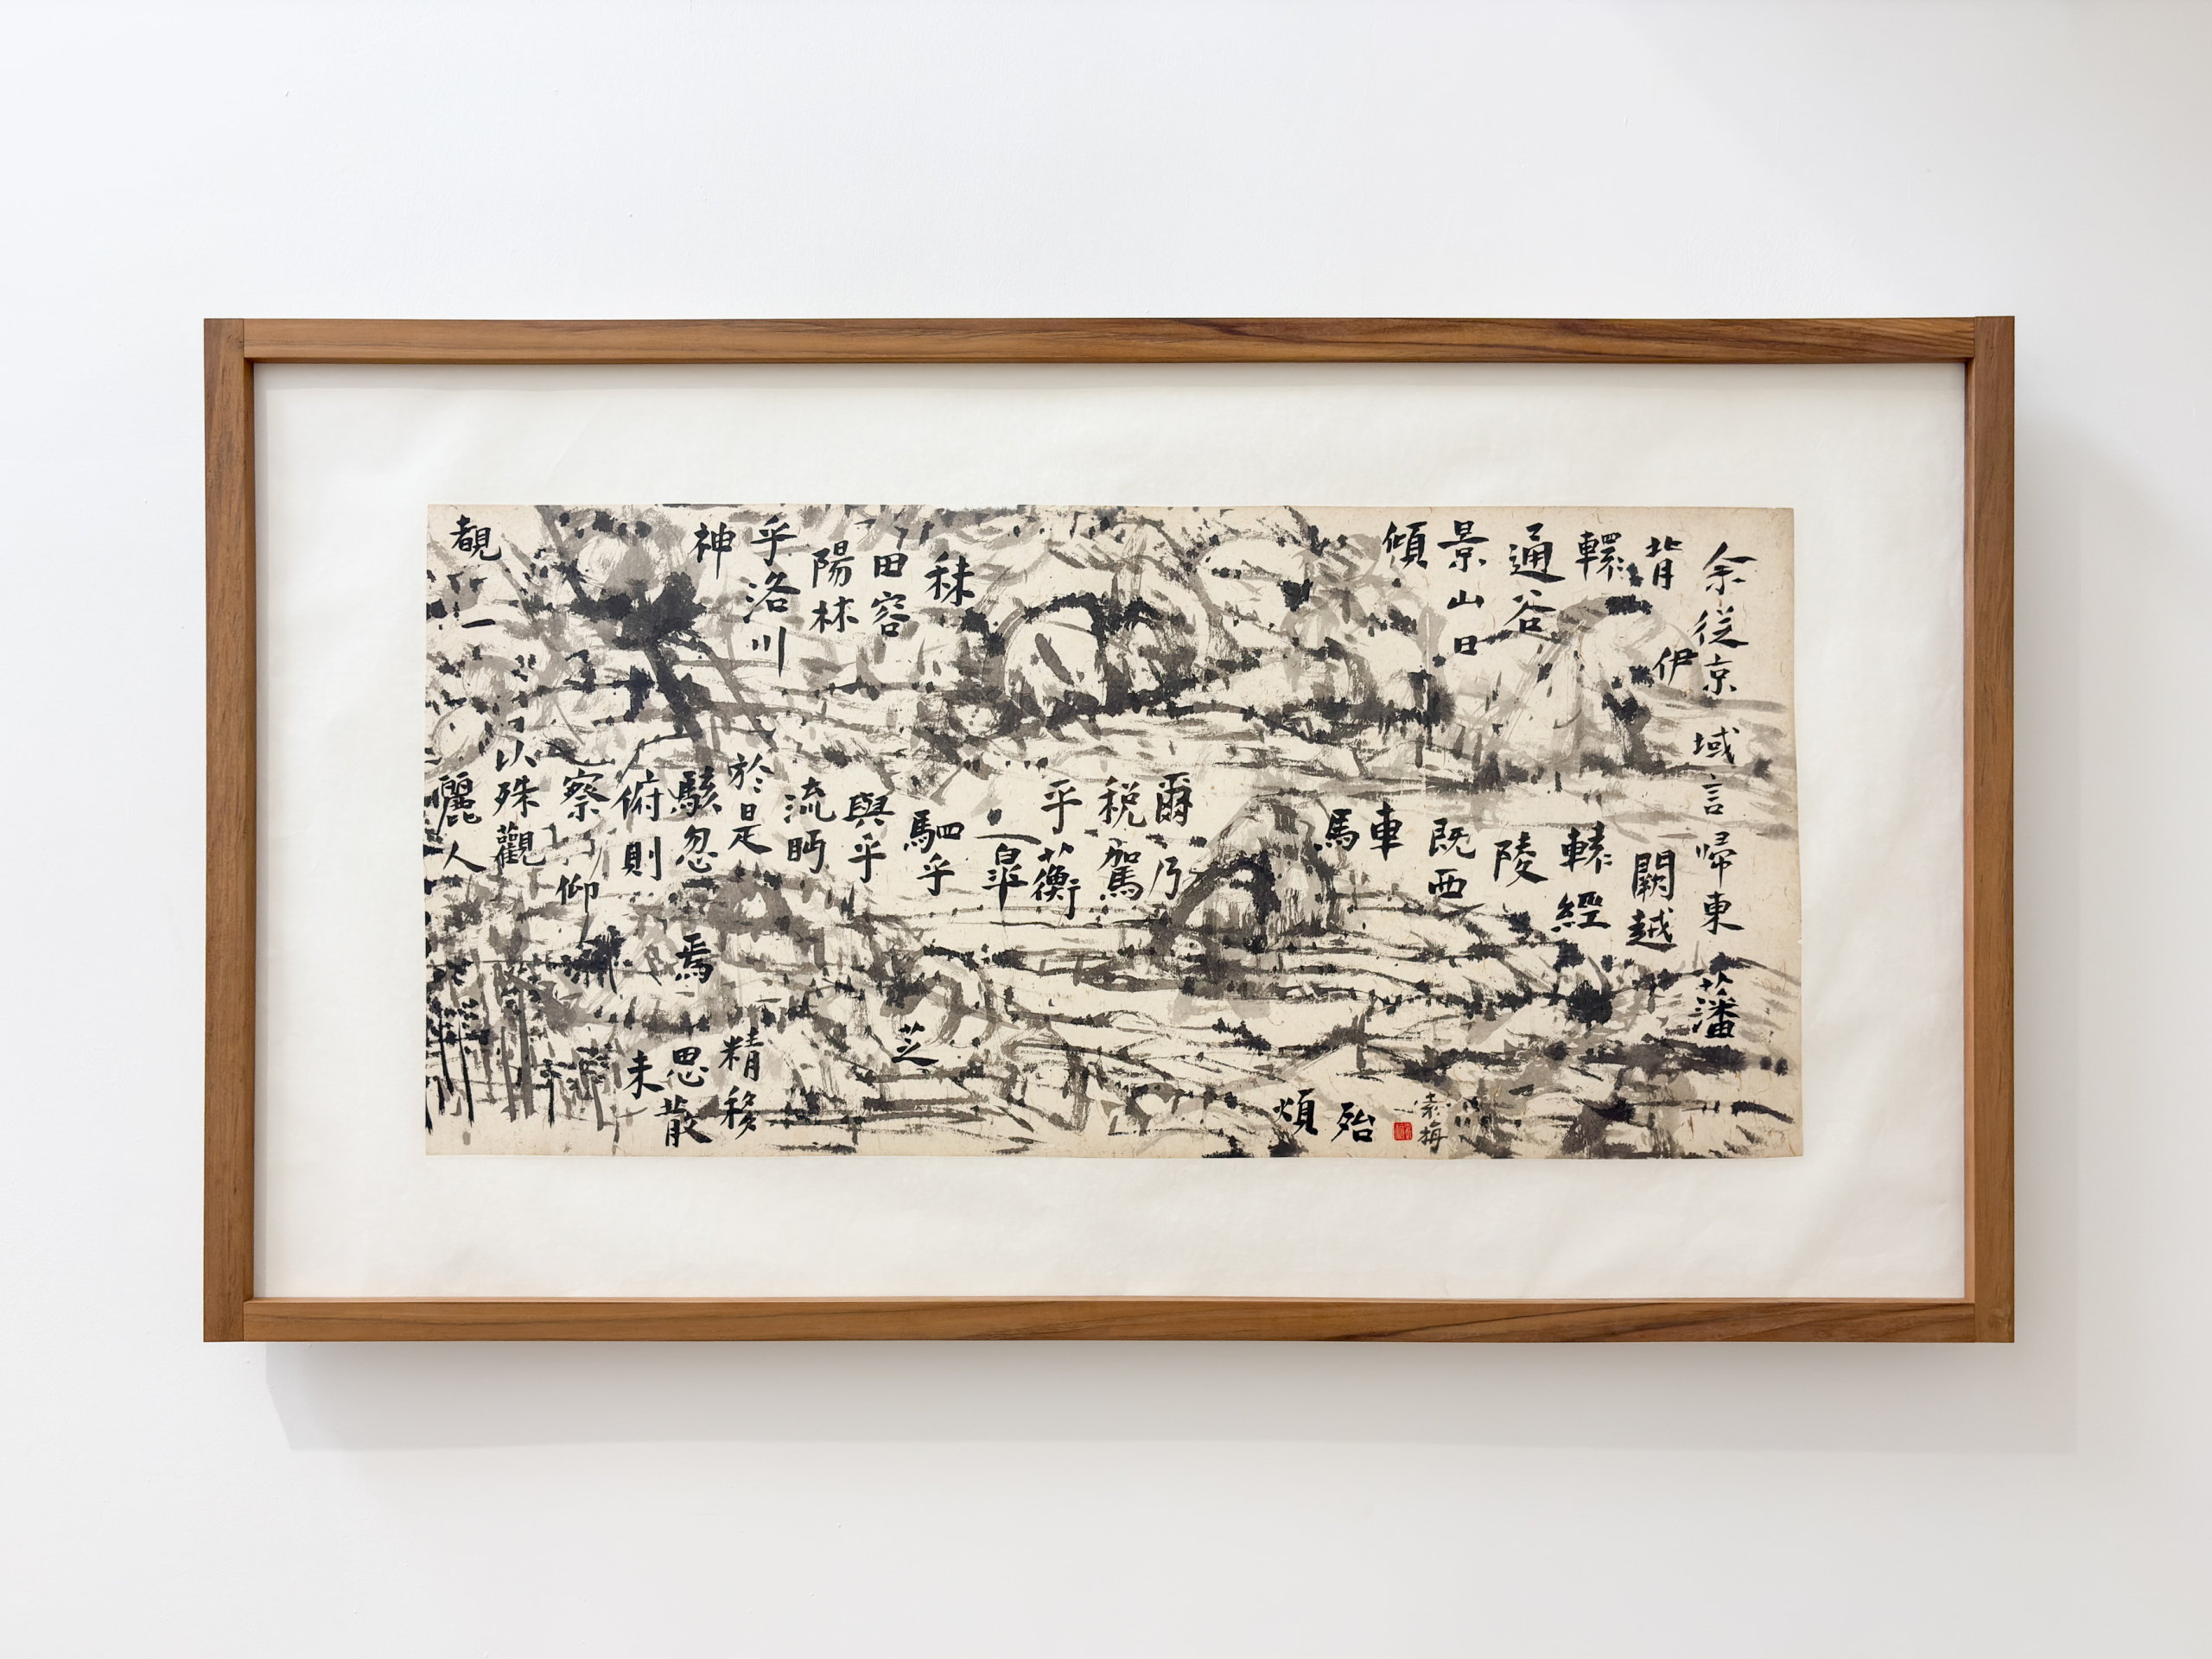 余従京域言帰東藩
背伊闕越
轘轅經
通谷陵
景山日既西
傾車殆
馬煩
爾乃
税駕
乎蘅
皐
秣駟乎芝
田容與乎
陽林流眄
乎洛川於是精移
神駭忽焉思散
俯則未
察仰
以殊觀
覩一麗人
梅